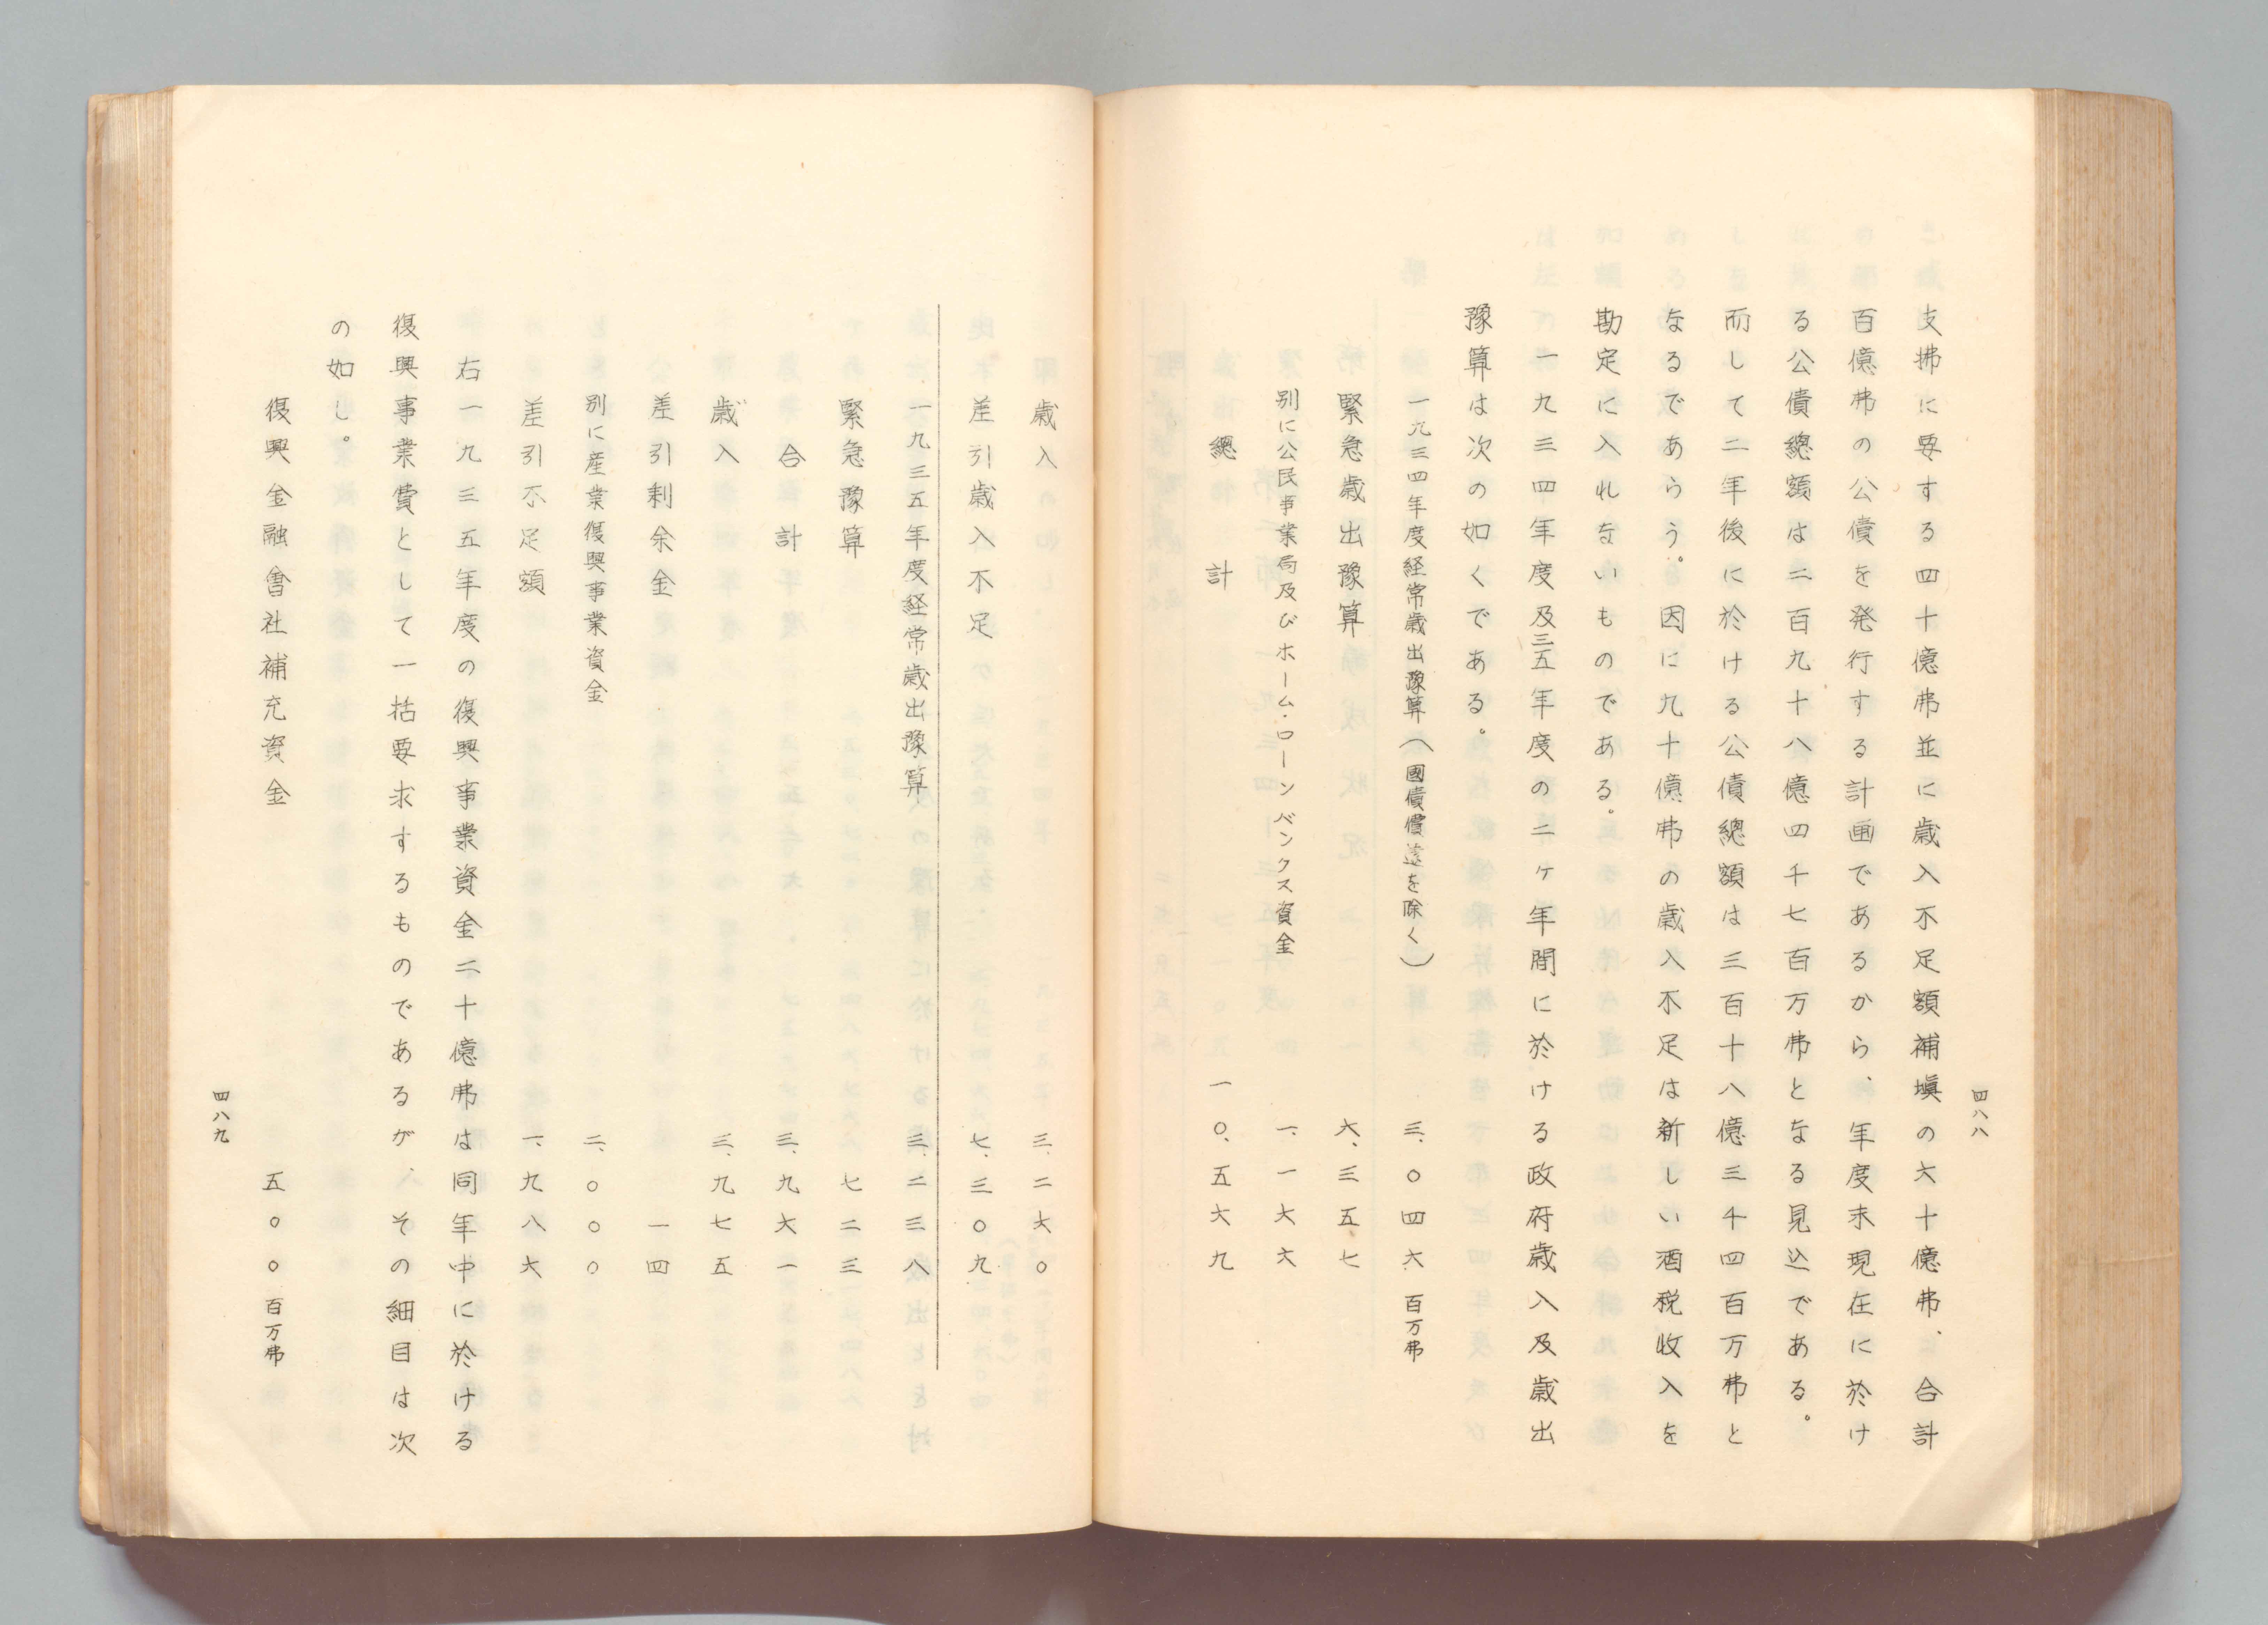 四八八
支拂に要する四十億弗並に歳入不足額補塡の六十億弗、合計
百億弗の公債を発行する計画であるから、年度末現在に於け
る公債總額は二百九十八億四千七百万弗となる見込である。
而して二年後に於ける公債總額は三百十八億三千四百万弗と
なるであらう。因に九十億弗の歳入不足は新しい酒税收入を
勘定に入れないものである。
一九三四年度及三五年度の二ヶ年間に於ける政府歳入及歳出
豫算は次の如くである。
一九三四年度経常歳出豫算(國債償還を除く) 三、〇四六百万弗
緊急歳出豫算 六、三五七
別に公民事業局及びホーム・ローンバンクス資金 一、一六六
總計 一〇、五六九
歳入 三、二六〇
差引歳入不足 七、三〇九
一九三五年度経常歳出豫算 三、二三八
緊急豫算 七二三
合計 三、九六一
歳入 三、九七五
差引剰余金 一四
別に産業復興事業資金 二、〇〇〇
差引不足額 一、九八六
右一九三五年度の復興事業資金二十億弗は同年中に於ける
復興事業費として一括要求するものであるが、その細目は次
の如し。
復興金融會社補充資金 五〇〇百万弗
四八九